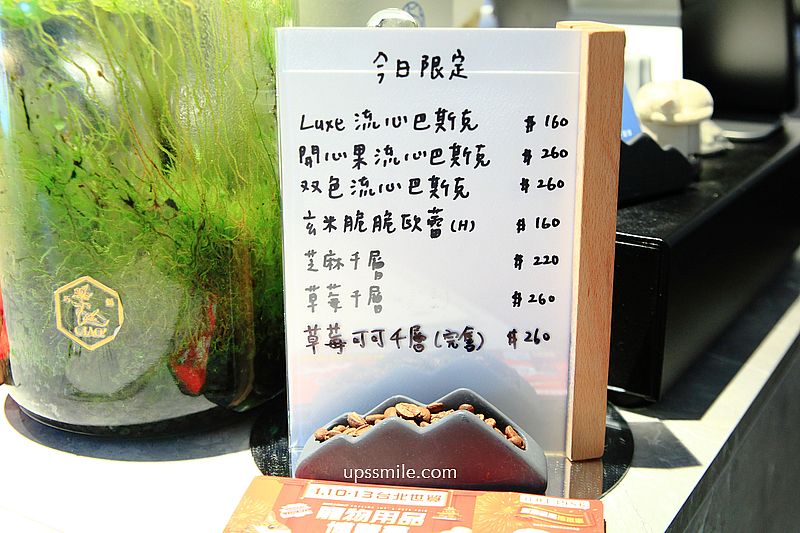 今日限定
Luxe 流心巴斯克 $160
開心果流心巴斯克 $260
双色流心巴斯克 $260
玄米脆脆歐蕾(H) $160
芝麻千層 $220
草莓千層 $260
草莓可可千層(完售) $260
upssmile.com
1.10-13 台北世貿
寵物用品